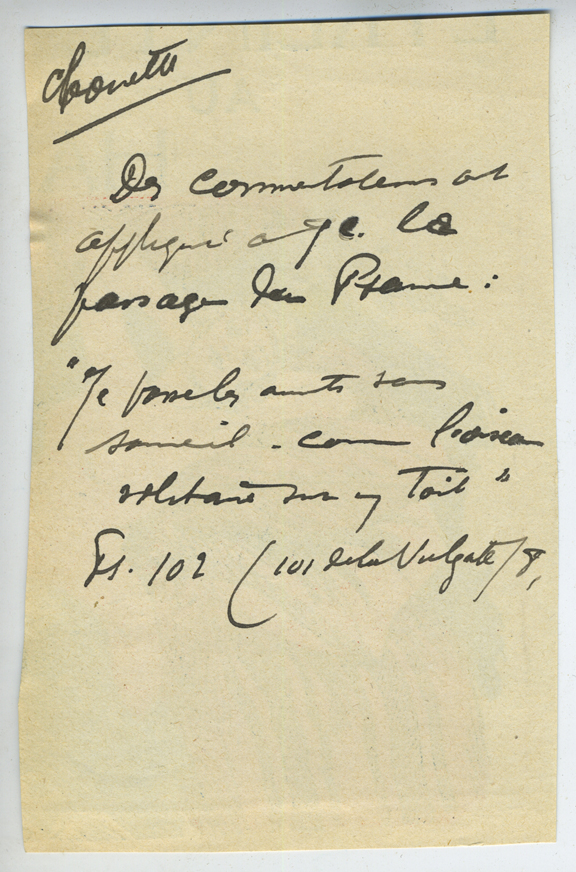 Chouette
Des commentateurs ont
appliqué a J.C. le
passage des Psaume :
"Je passe les nuits sans
sommeil - comme l'oiseau
solitaire sur un toit"
Ps. 102 (101 de la Vulgate) 8,